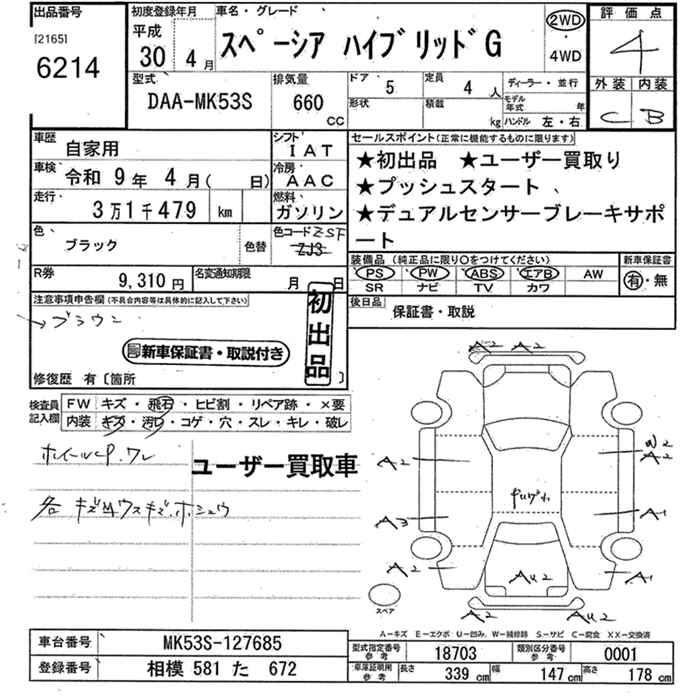 出品番号 初度登録年月 車名・グレード 評価点
[2165] 平成 2WD
6214 30年 4月 スペーシア ハイブリッドG 4WD 4
型式 排気量 ドア 5 定員 4人 ディーラー・並行 外装 内装
DAA-MK53S 660 CC 形状 積載 kg モデル年式 年 C B
ハンドル 左・右
車歴 自家用 シフト IAT セールスポイント(正常に機能するものに限ります)
車検 令和 9年 4月( 日) 冷房 AAC ★初出品 ★ユーザー買取り
走行 3万1千479 km 燃料 ガソリン ★プッシュスタート
★デュアルセンサーブレーキサポ
ート
色 ブラック 色替 色コード ZSF ZJ3
装備品(純正品に限り○をつけてください) 新車保証書
R券 9,310円 名変通知期限 月 日 PS PW ABS エアB AW 有・無
SR ナビ TV カワ
注意事項申告欄(不具合内容等は具体的に記入して下さい) 後日品 保証書・取説
→ブラウン
初出品
新車保証書・取説付き
修復歴 有〔箇所 〕
検査員記入欄 FW キズ・飛石・ヒビ割・リペア跡・×要
内装 キズ・汚れ・コゲ・穴・スレ・キレ・破レ
ユーザー買取車
A2 A2
A2 W2
A2
A3 A1
A2 AU2 A1
A2 AU2
スペア
A-キズ E-エクボ U-凹み W-補修跡 S-サビ C-腐食 XX-交換済
車台番号 MK53S-127685 型式指定番号 参考 18703 類別区分番号 参考 0001
登録番号 相模 581 た 672 車庫証明用 参考 長さ 339 cm 幅 147 cm 高さ 178 cm